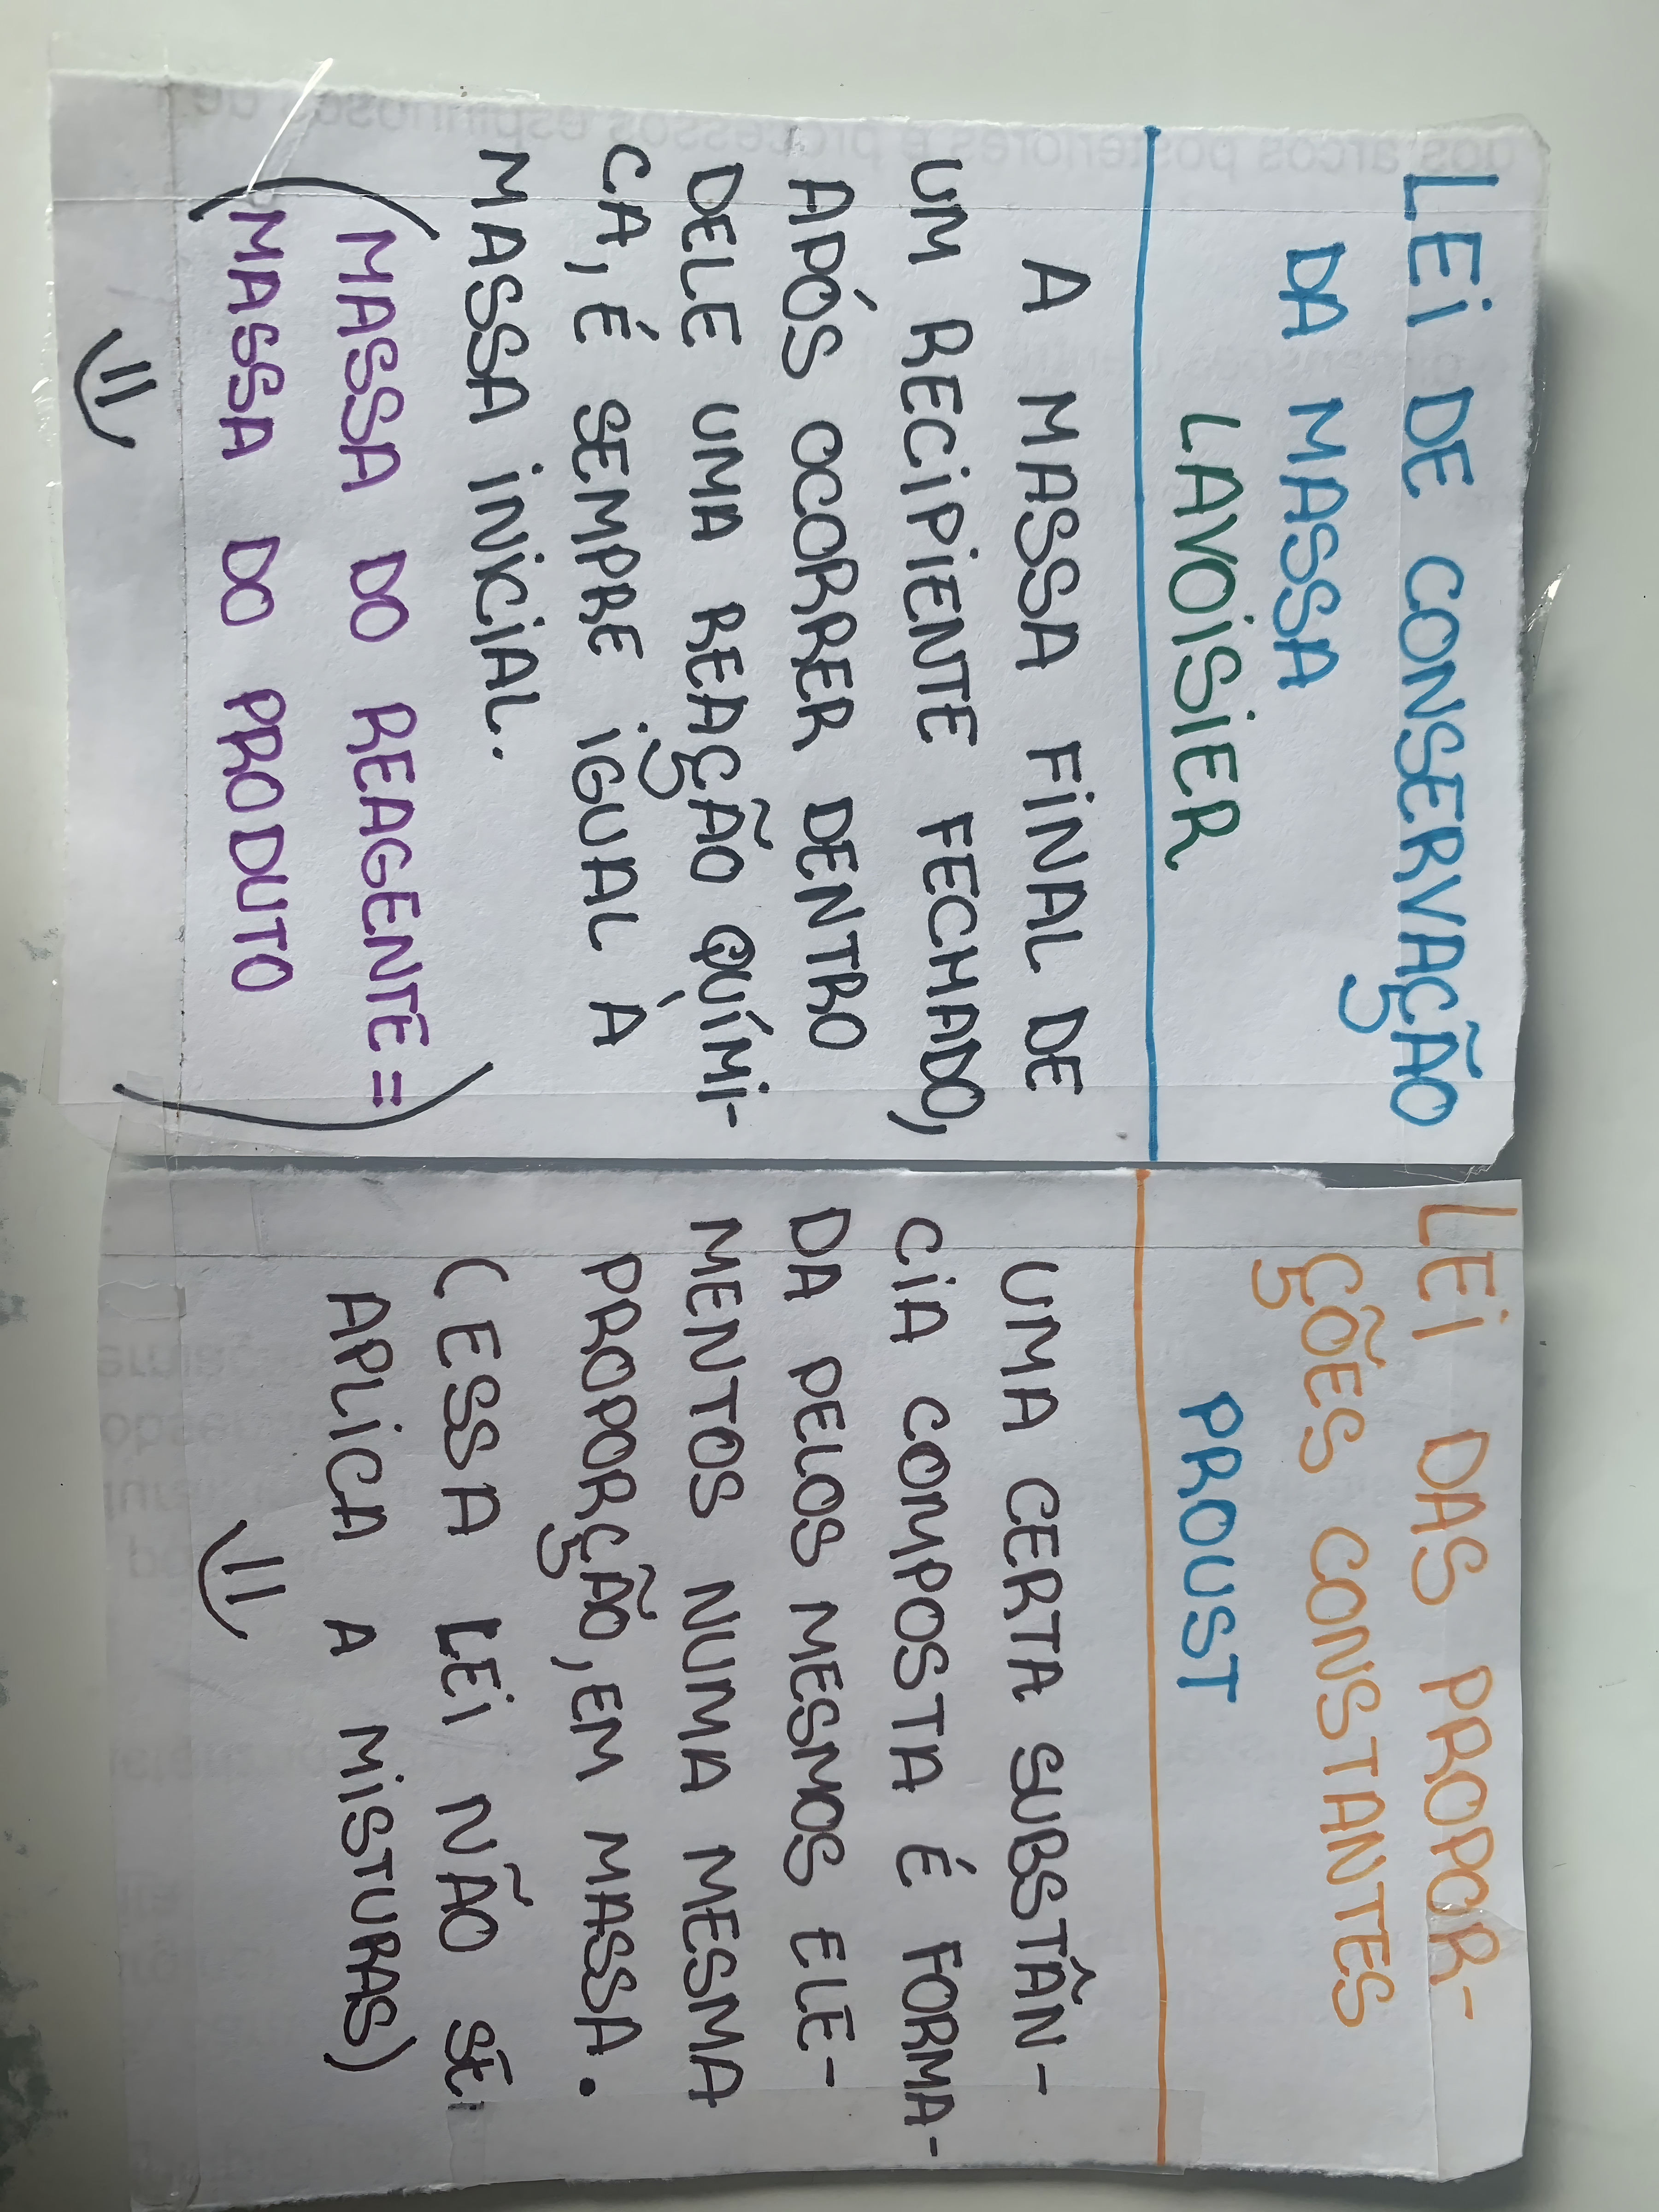 LEI DE CONSERVAÇÃO
DA MASSA
LAVOISIER
A MASSA FINAL DE
UM RECIPIENTE FECHADO,
APÓS OCORRER DENTRO
DELE UMA REAÇÃO QUÍMI-
CA, É SEMPRE IGUAL À
MASSA INICIAL.
(MASSA DO REAGENTE =
MASSA DO PRODUTO)
=)
LEI DAS PROPOR-
ÇÕES CONSTANTES
PROUST
UMA CERTA SUBSTÂN-
CIA COMPOSTA É FORMA-
DA PELOS MESMOS ELE-
MENTOS NUMA MESMA
PROPORÇÃO, EM MASSA.
(ESSA LEI NÃO SE
APLICA A MISTURAS)
=)
dos arcos posteriores e processos espinhosos de